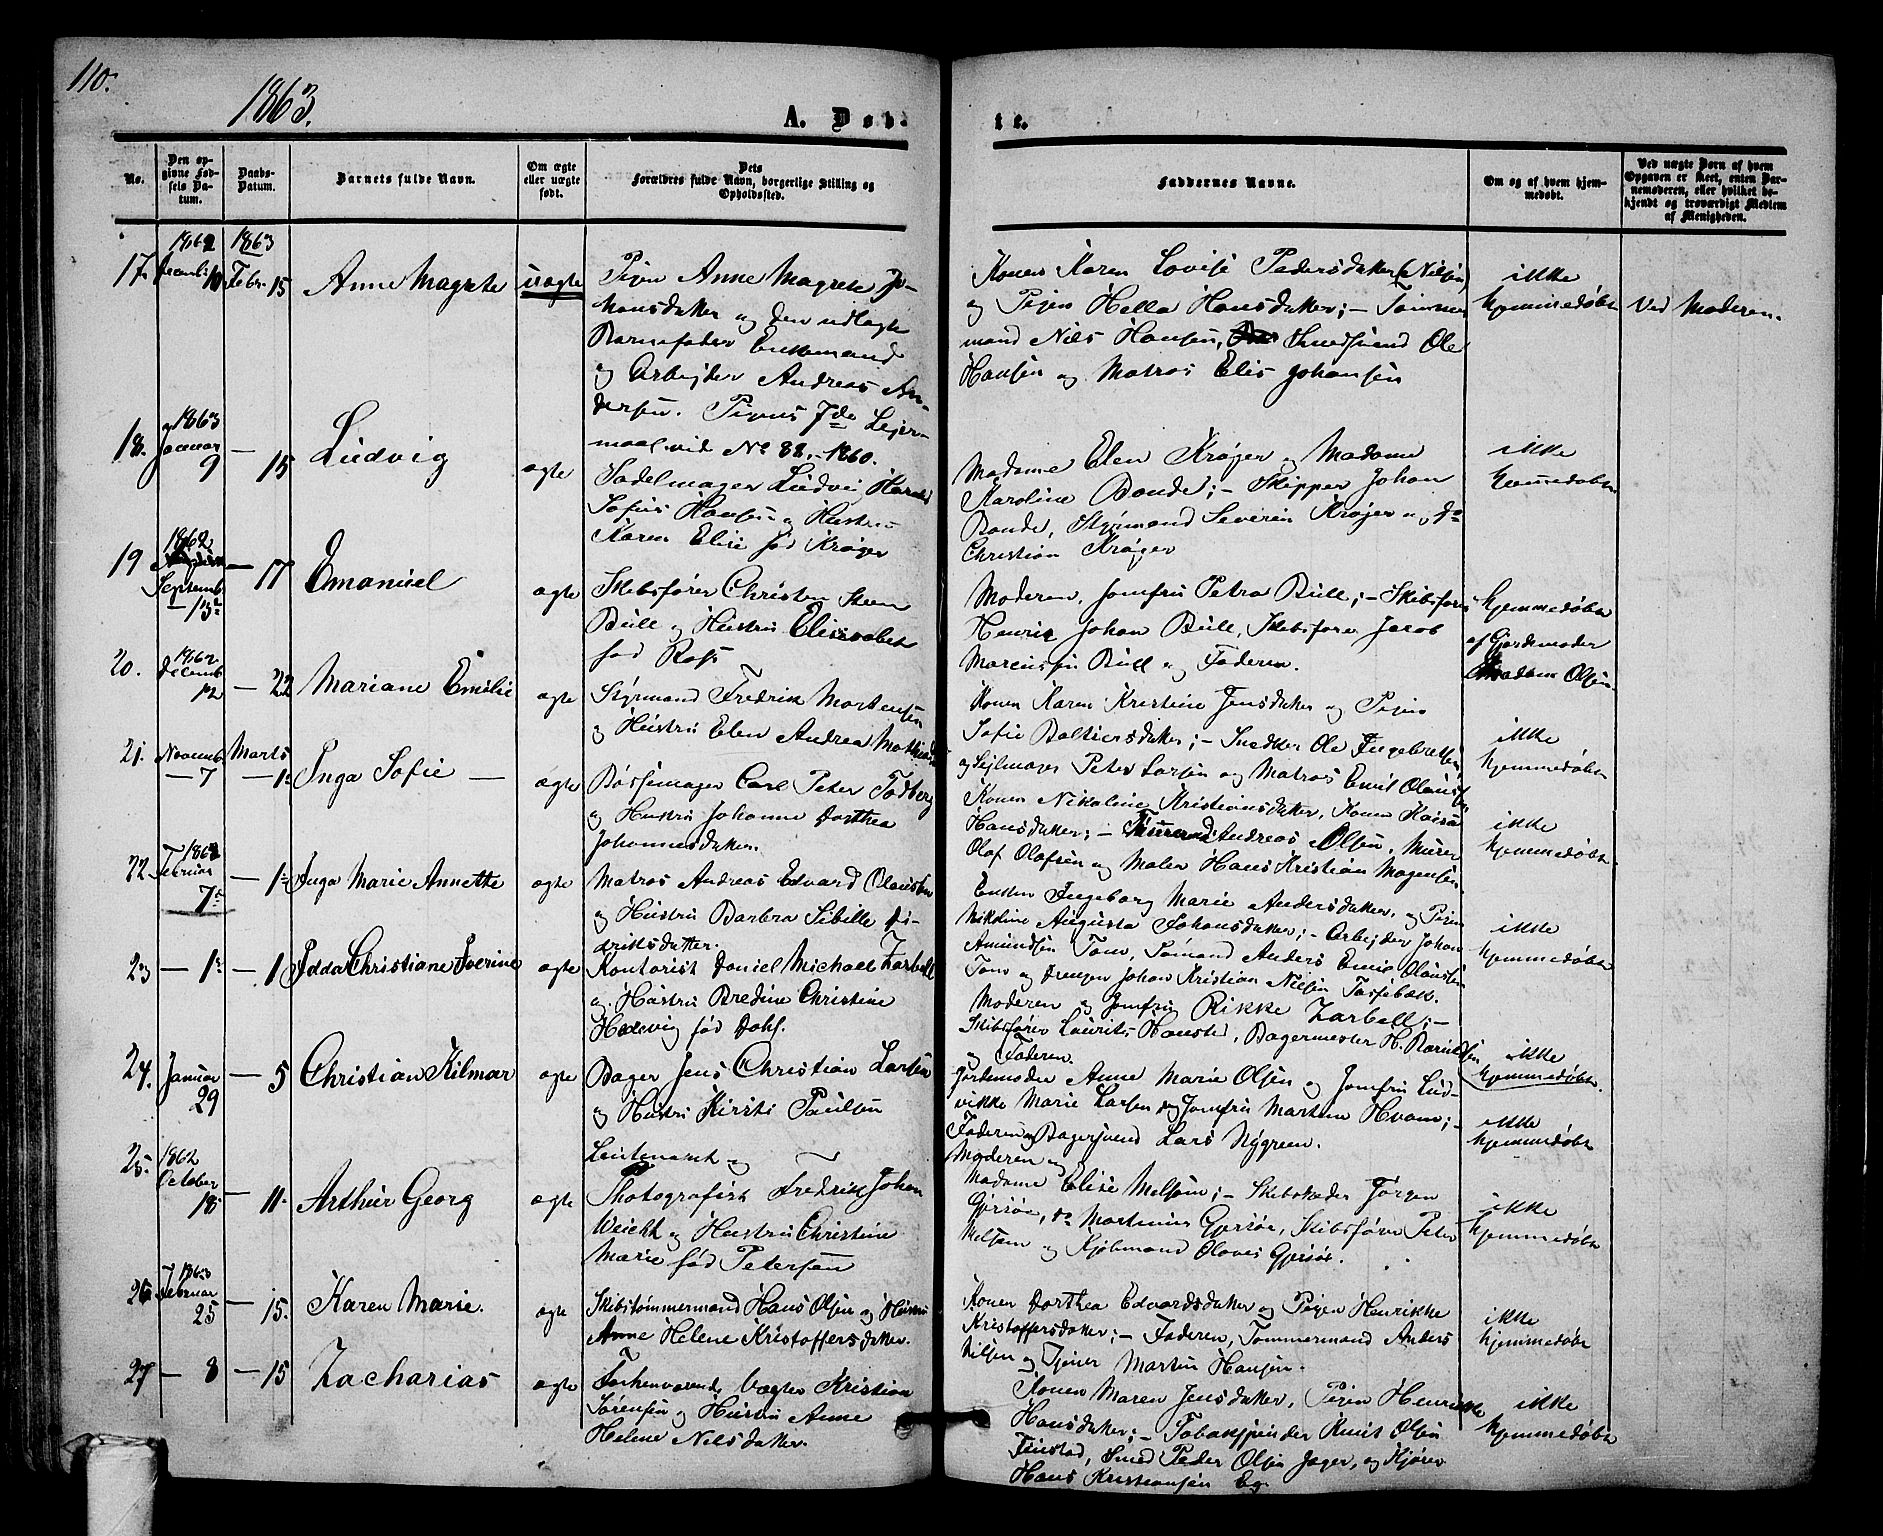 110.
1863.
A. Døb-
te.
No.
Den op-
givne Fød-
sels Da-
tum.
Daabs-
Datum.
Barnets fulde Navn.
Om ægte
eller uægte
født.
Dets
Forældres fulde Navn, borgerlige Stilling og
Opholdssted.
Faddernes Navne.
Om og af hvem hjem-
medøbt.
Ved uægte Børn af hvem
Opgaven er skeet, enten Bar-
nemoderen, eller hvilket be-
kjendt og troværdigt Medlem
af Menigheden.
17. 1862 10 1863 Febr. 15 Anne Magrete uægte
Pigen Anne Magrete Jo-
hansdatter og den udlagte
Barnefader Enkemand
og Arbejder Andreas An-
dersen. Pigens 7de Lejer-
maal vid No 88.-1860.
Konen Karen Lovise Pedersdatter (Nilsen)
og Pigen Hella Hansdatter; - Tømmer
mand Nils Hansen, Smedsvend Ole
Hansen og Matros Elis Johansen
ikke
hjemmedøbt
Ved Moderen.
18. 1863 Januar 9 — 15 Ludvig ægte
Sadelmager Ludvig Harald
Sofus Hansen og Hustru
Karen Elise fød Krøger
Madame Elen Krøger og Madame
Karoline Bonde; - Skipper Johan
Bonde, Styrmand Severin Krøger og do
Christian Krøger
ikke
hjemmedøbt
19 1862 Septemb. 13 — 17 Emanuel ægte
Skibsfører Christen Steen
Bull og Hustru Elissabet
fød Ross
Moderen, Jomfru Petra Bull; - Skibsfører
Henrik Johan Bull, Skibsfører Jacob
Marensin Bull og Faderen.
hjemmedøbt
af Gjordemoder
Madam Olsen.
20. 1862 Decemb 12 — 22 Mariane Emilie ægte
Styrmand Fredrik Mortensen
og Hustru Elen Andrea
Konen Karen Kristine Jensdatter og Pigen
Sofie Baltsersdatter; - Snedker Ole Ingebretsen
og Sejlmager Peter Larsen og Matros Emil Olausen
ikke
hjemmedøbt
21. Novemb. — 7 Marts — 1 Inga Sofie — ægte
Bøssemager Carl Peter Fodberg
og Hustru Johanne Dorthea
Johannesdatter.
Konen Nikoline Kristiansdatter, Konen Kaisa
Hansdatter; - Andreas Olsen, Murer
Olaf Olafsen og Maler Hans Kristian Mogensen
ikke
hjemmedøbt
22 1862 Februar 7 — 1 Inga Marie Annette ægte
Matros Andreas Edvard Olausen
og Hustru Barbra Sibille Di-
driksdatter.
Enken Ingeborg Marie Andersdatter, og Pigen
Nikoline Augusta Johansdatter; - Arbejder Johan
Amundsen Tom, Sømand Anders Emil Olausen
Tom og Drengen Johan Kristian Nilsen Tassebæk.
ikke
hjemmedøbt
23 — 1 — 1 Idda Christiane Iverine ægte
Kontorist Daniel Michael Zarbell
og Hustru Bredine Christine
Hedevig fød Dahl.
Moderen og Jomfru Rikke Zarbell; -
Skibsfører Laurits Hansted, Bagermester H.
og Faderen.
ikke
hjemmedøbt.
24. Januar 29 — 5 Christian Hilmar ægte
Bager Jens Christian Larsen
og Hustru Kirsti Paulsen
Jordemoder Anne Marie Olsen og Jomfru Lud-
vikke Marie Larsen og Jomfru Martine Hvam; -
Faderen og Bagersvend Lars Nygreen.
ikke
hjemmedøbt
25. 1862 October 18 — 11. Arthur Georg ægte
Leutenant og
Photografist Fredrik Johan
Weicht og Hustru Christine
Marie fød Petersen
Moderen og
Madame Elise Melsom; - Skibsreder Jørgen
Gjersøe, do Martinius Gjersøe, Skibsfører Peter
Melsom og Kjøbmand Olaves Gjersøe.
ikke
hjemmedøbt
26 1863 Februar 25 — 15. Karen Marie. ægte
Skibstømmermand Hans Olsen og Hustru
Anne Helene Kristoffersdatter.
Konen Dorthea Edvardsdatter og Pigen Henrikke
Kristoffersdatter; - Faderen, Tømmermand Anders
Nilsen og Tjener Martin Hansen.
ikke
hjemmedøbt
27 — 8 — 15 Zacharias ægte
Forhenværende Vægter Kristian
Sørensen og Hustru Anne
Helene Nilsdatter.
Konen Maren Jensdatter, Pigen Henrikke
Hansdatter; - Tobakspinder Knut Olsen
Finstad, Smed Peder Olsen Jager, og Kjører
Hans Kristiansen Eg.
ikke
hjemmedøbt